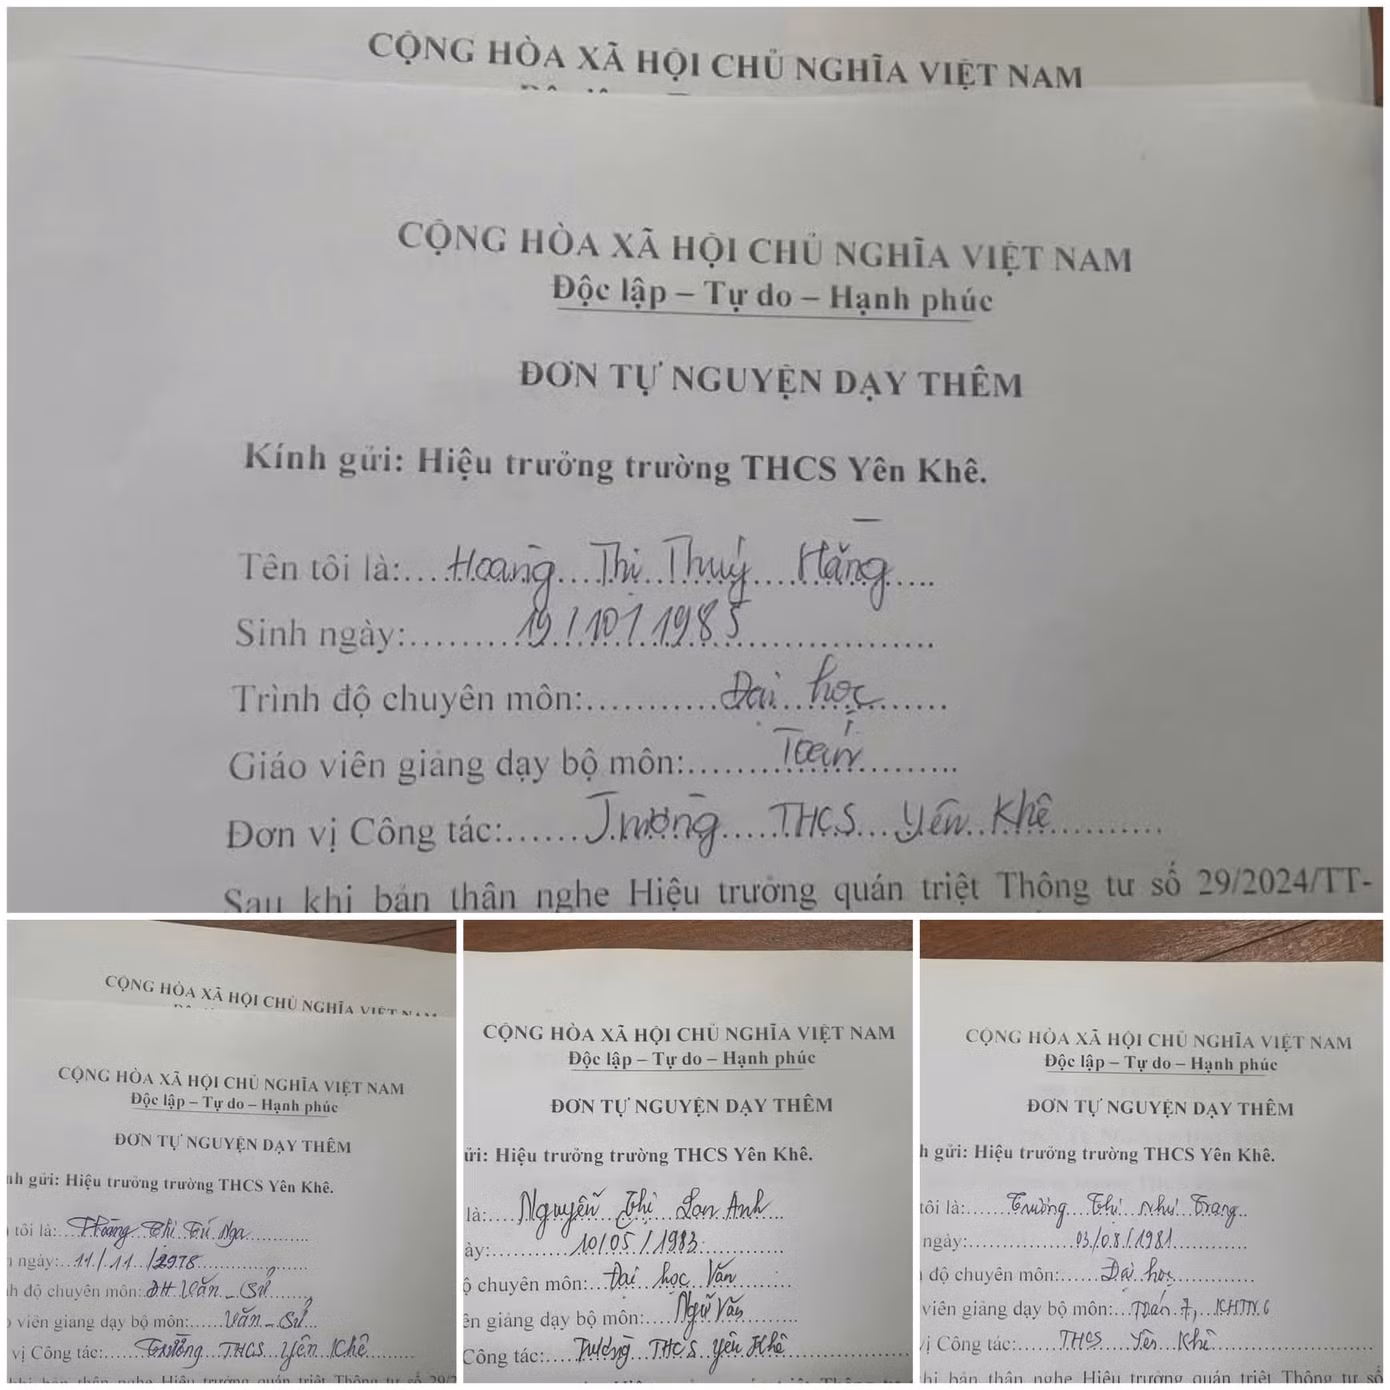 CỘNG HÒA XÃ HỘI CHỦ NGHĨA VIỆT NAM
CỘNG HÒA XÃ HỘI CHỦ NGHĨA VIỆT NAM
Độc lập – Tự do – Hạnh phúc
ĐƠN TỰ NGUYỆN DẠY THÊM
Kính gửi: Hiệu trưởng trường THCS Yên Khê.
Tên tôi là:....Hoàng Thị Thuý Hằng.....
Sinh ngày:........19/10/1985..................
Trình độ chuyên môn:..........Đại học.......
Giáo viên giảng dạy bộ môn:........Toán..........
Đơn vị Công tác:......Trường THCS Yên Khê..........
Sau khi bản thân nghe Hiệu trưởng quán triệt Thông tư số 29/2024/TT-
CỘNG HÒA XÃ HỘI CHỦ NGHĨA VIỆT NAM
CỘNG HÒA XÃ HỘI CHỦ NGHĨA VIỆT NAM
Độc lập – Tự do – Hạnh phúc
ĐƠN TỰ NGUYỆN DẠY THÊM
nh gửi: Hiệu trưởng trường THCS Yên Khê.
tôi là: Thị Tú Nga............
ngày:..11/11/1978..................
h độ chuyên môn: ĐH Văn - Sử.......
viên giảng dạy bộ môn:......Văn - Sử..
vị Công tác:......Trường THCS Yên Khê........
bản thân nghe Hiệu trưởng quán triệt Thông tư số 29/2
CỘNG HÒA XÃ HỘI CHỦ NGHĨA VIỆT NAM
Độc lập – Tự do – Hạnh phúc
ĐƠN TỰ NGUYỆN DẠY THÊM
ửi: Hiệu trưởng trường THCS Yên Khê.
là:....Nguyễn Thị Lan Anh...
ày:............10/05/1983............
ộ chuyên môn:...Đại học Văn........
ên giảng dạy bộ môn:.....Ngữ Văn.....
Công tác:....Trường THCS Yên Khê..............
CỘNG HÒA XÃ HỘI CHỦ NGHĨA VIỆT NAM
Độc lập – Tự do – Hạnh phúc
ĐƠN TỰ NGUYỆN DẠY THÊM
h gửi: Hiệu trưởng trường THCS Yên Khê.
tôi là:......Trương Thị Như Trang..
ngày:................03/08/1981............
độ chuyên môn:......Đại học.............
viên giảng dạy bộ môn:...Toán 7, KHTN 6
vị Công tác:.......THCS Yên Khê......................
hi bản thân nghe Hiệu trưởng quán triệt Thông tư số